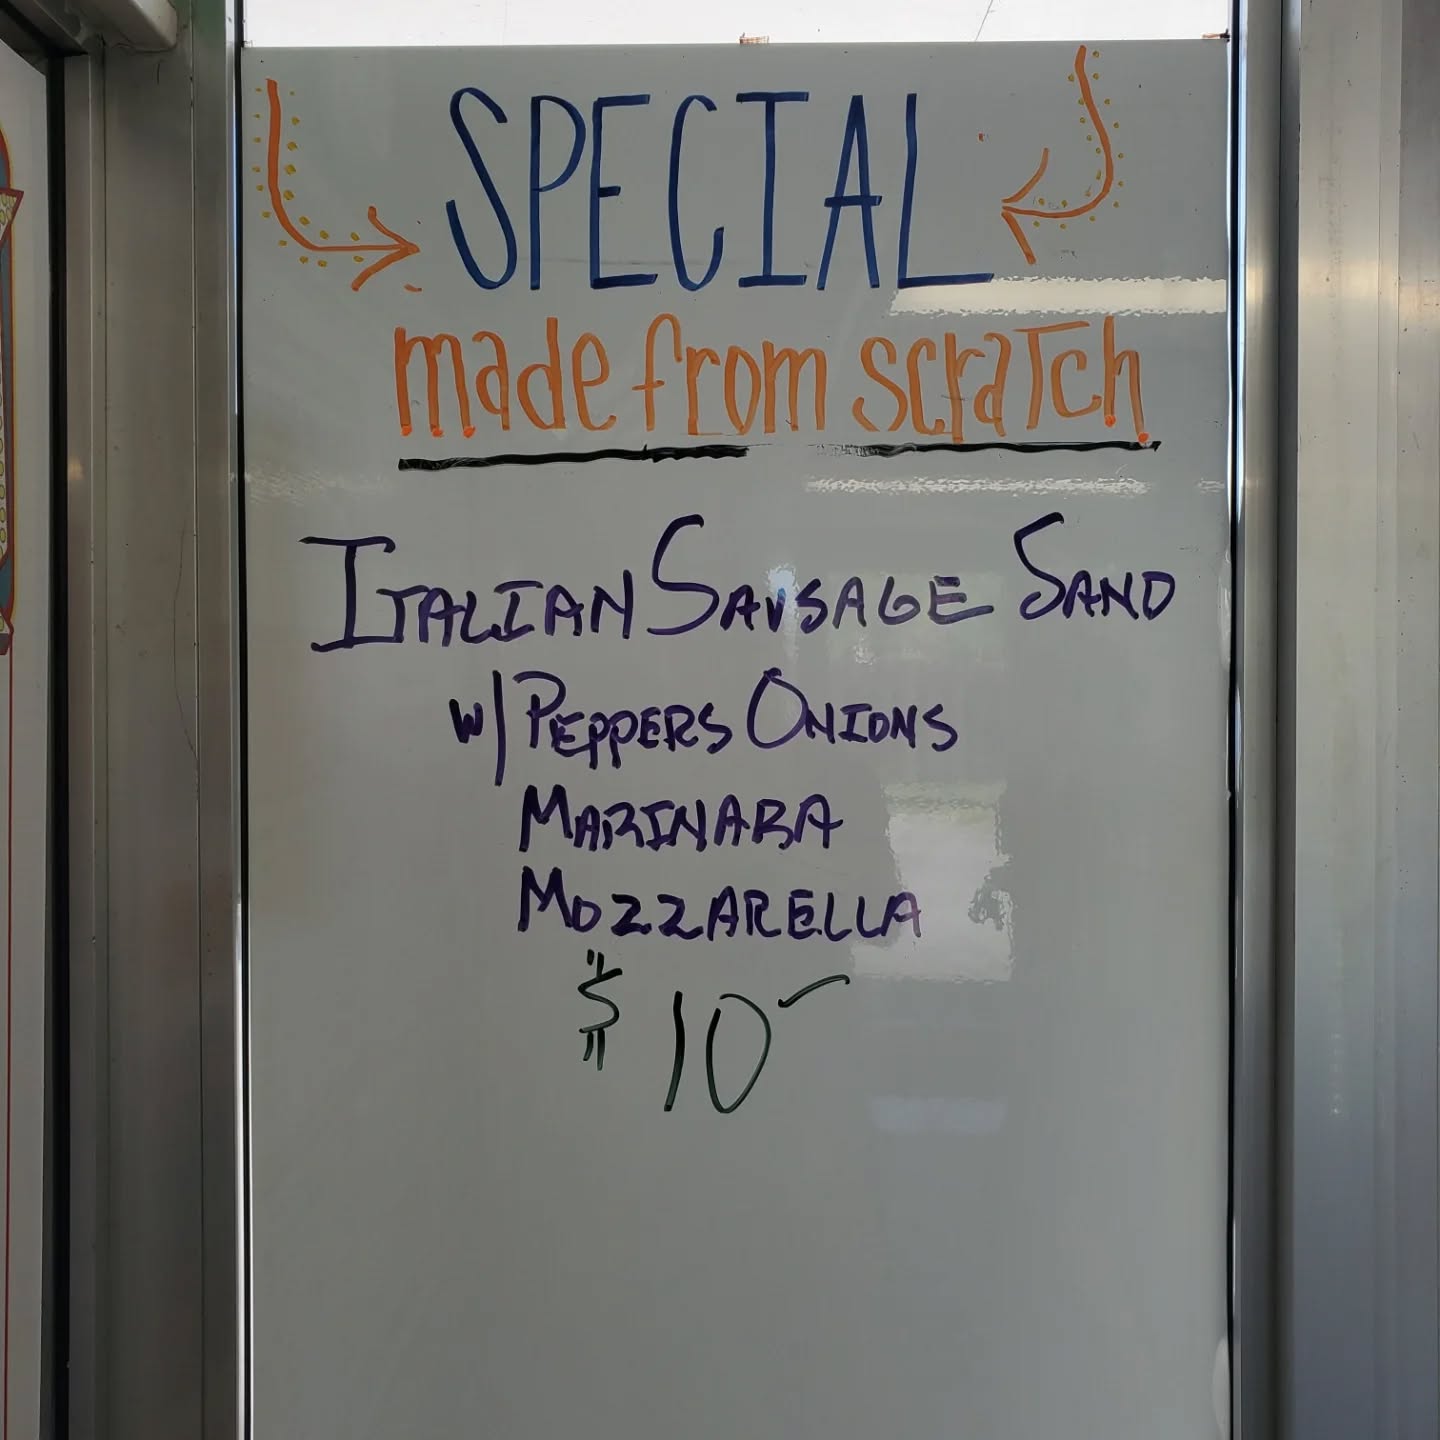 SPECIAL
made from scratch
ITALIAN SAUSAGE SAND
W/ PEPPERS ONIONS
MARINARA
MOZZARELLA
$10-